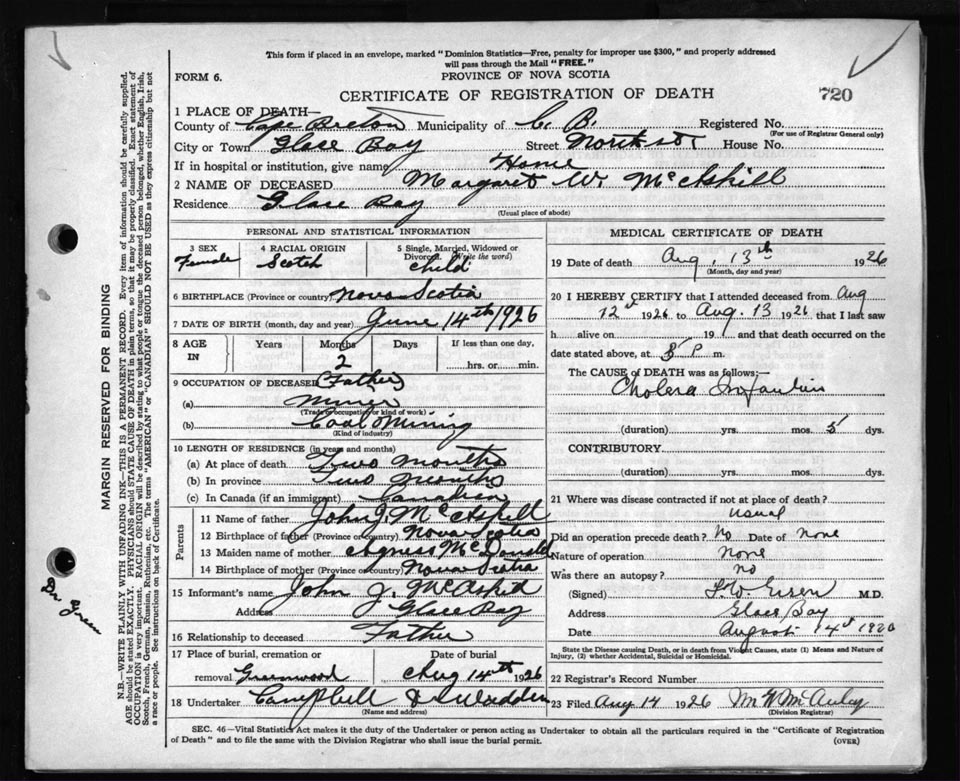 This form if placed in an envelope, marked "Dominion Statistics—Free, penalty for improper use $300," and properly addressed
will pass through the Mail "FREE."
FORM 6.
PROVINCE OF NOVA SCOTIA
CERTIFICATE OF REGISTRATION OF DEATH
720
1 PLACE OF DEATH—
County of Cape Breton Municipality of C. B. Registered No.
(For use of Registrar General only)
City or Town Glace Bay Street North st. House No.
If in hospital or institution, give name Home
2 NAME OF DECEASED Margaret W. McAskill
Residence Glace Bay
(Usual place of abode)
PERSONAL AND STATISTICAL INFORMATION
3 SEX 4 RACIAL ORIGIN 5 Single, Married, Widowed or
Divorced (Write the word)
Female Scotch Child
6 BIRTHPLACE (Province or country) Nova Scotia
7 DATE OF BIRTH (month, day and year) June 14th/1926
8 AGE IN Years Months Days If less than one day,
2 hrs. or min.
9 OCCUPATION OF DECEASED (Father)
(a) Miner
(Trade occupation or kind of work)
(b) Coal Mining
(Kind of industry)
10 LENGTH OF RESIDENCE (in years and months)
(a) At place of death Two months
(b) In province Two Months
(c) In Canada (if an immigrant) Canadian
Parents
11 Name of father John J. McAskill
12 Birthplace of father (Province or Country) Nova Scotia
13 Maiden name of mother Agness McDonald
14 Birthplace of mother (Province or Country) Nova Scotia
15 Informant's name John J. McAskid
Address Glace Bay
16 Relationship to deceased Father
17 Place of burial, cremation or Date of burial
removal Greenwood Aug 14th 1926
18 Undertaker Campbell &
(Name and address)
MEDICAL CERTIFICATE OF DEATH
19 Date of death Aug. 13th 1926
(Month, day and year)
20 I HEREBY CERTIFY that I attended deceased from Aug
12th 1926 to Aug. 13 1926 that I last saw
h alive on 19 and that death occurred on the
date stated above, at P m.
The CAUSE OF DEATH was as follows:—
Cholera Infantum
(duration) yrs. mos. 5 dys.
CONTRIBUTORY
(duration) yrs. mos. dys.
21 Where was disease contracted if not at place of death?
usual
Did an operation precede death? No Date of none
Nature of operation none
Was there an autopsy? no
(Signed) M.D.
Address Glace Bay
Date August 14th 1926
State the Disease causing Death, or in death from Violent Causes, state (1) Means and Nature of
Injury, (2) whether Accidental, Suicidal or Homicidal.
22 Registrar's Record Number
23 Filed Aug 14 1926 McAulay
(Division Registrar)
SEC. 46—Vital Statistics Act makes it the duty of the Undertaker or person acting as Undertaker to obtain all the particulars required in the "Certificate of Registration
of Death" and to file the same with the Division Registrar who shall issue the burial permit.
(OVER)
MARGIN RESERVED FOR BINDING
N.B.—WRITE PLAINLY WITH UNFADING INK—THIS IS A PERMANENT RECORD. Every item of information should be carefully supplied.
AGE should be stated EXACTLY. PHYSICIANS should STATE CAUSE OF DEATH in plain terms, so that it may be properly classified. Exact statement of
OCCUPATION is very important. RACIAL ORIGIN will be described by stating to what people or tongue the deceased person belonged, whether English, Irish,
Scotch, French, German, Russian, Ruthenian, etc. The terms "AMERICAN" or "CANADIAN" SHOULD NOT BE USED as they express citizenship but not
a race or people. See instructions on back of Certificate.
Dr. Green